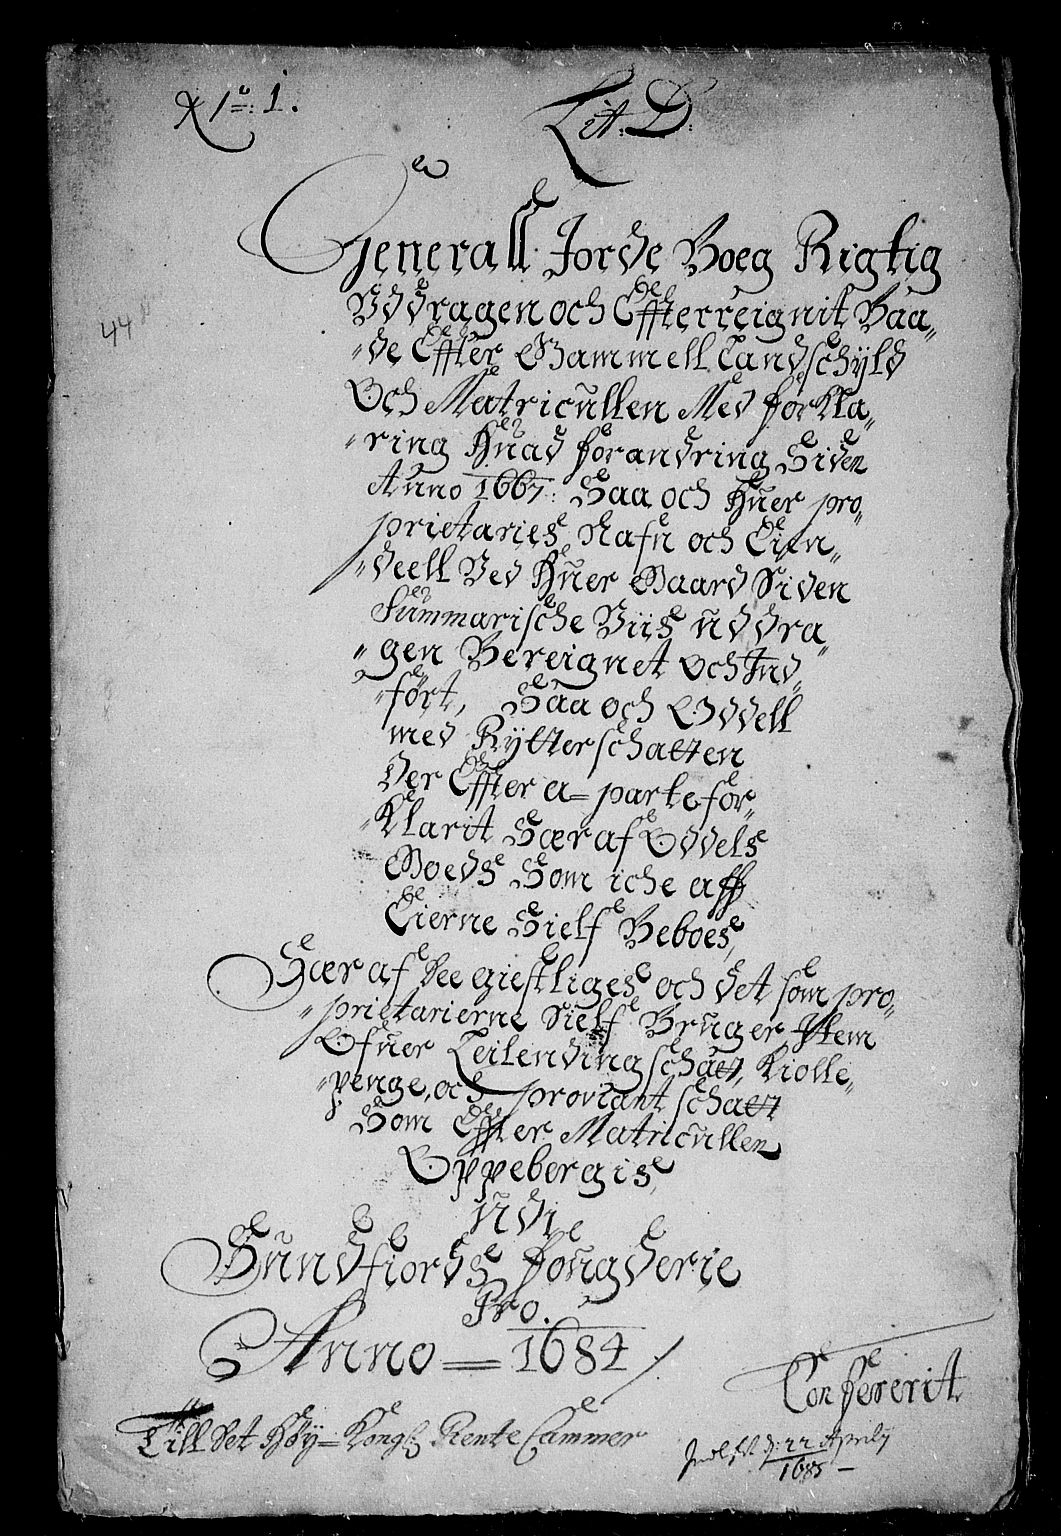 No: 1.
Lit. D:
Generall Jorde Boeg Rigtig
Vddragen och Effterreignit Baa„
„de Effter Gammell Landschyld
Och Matricullen Med forkla„
„ring Huad forandring Siden
Anno 1667: Saa och Huer pro„
prietaries Nafn och Eien„
„deell Ved Huer Gaard Siden
Summarische Viis uddra„
„gen Bereignet och Ind„
„fört, Saa och Oddell
med Rytterschatten
Der Effter a=parte for„
„klarit Særaf Oddels
Goeds Som iche aff
Eierne Sielf Beboes,
Særaf dee giestliges och det som pro„
„prietarierne Sielf Bruger Jtem
Ofuer Leilendingschatt, Kiolle„
„penge, och proviant schatt
Som Effter Matricullen
Oppebergis,
udi
Sundfiords fougderie
Pro.
Anno = 1684
Confererit
Till det Höy=Kongl: Rente Cammer
d: 22 Aprily
1685 –
44